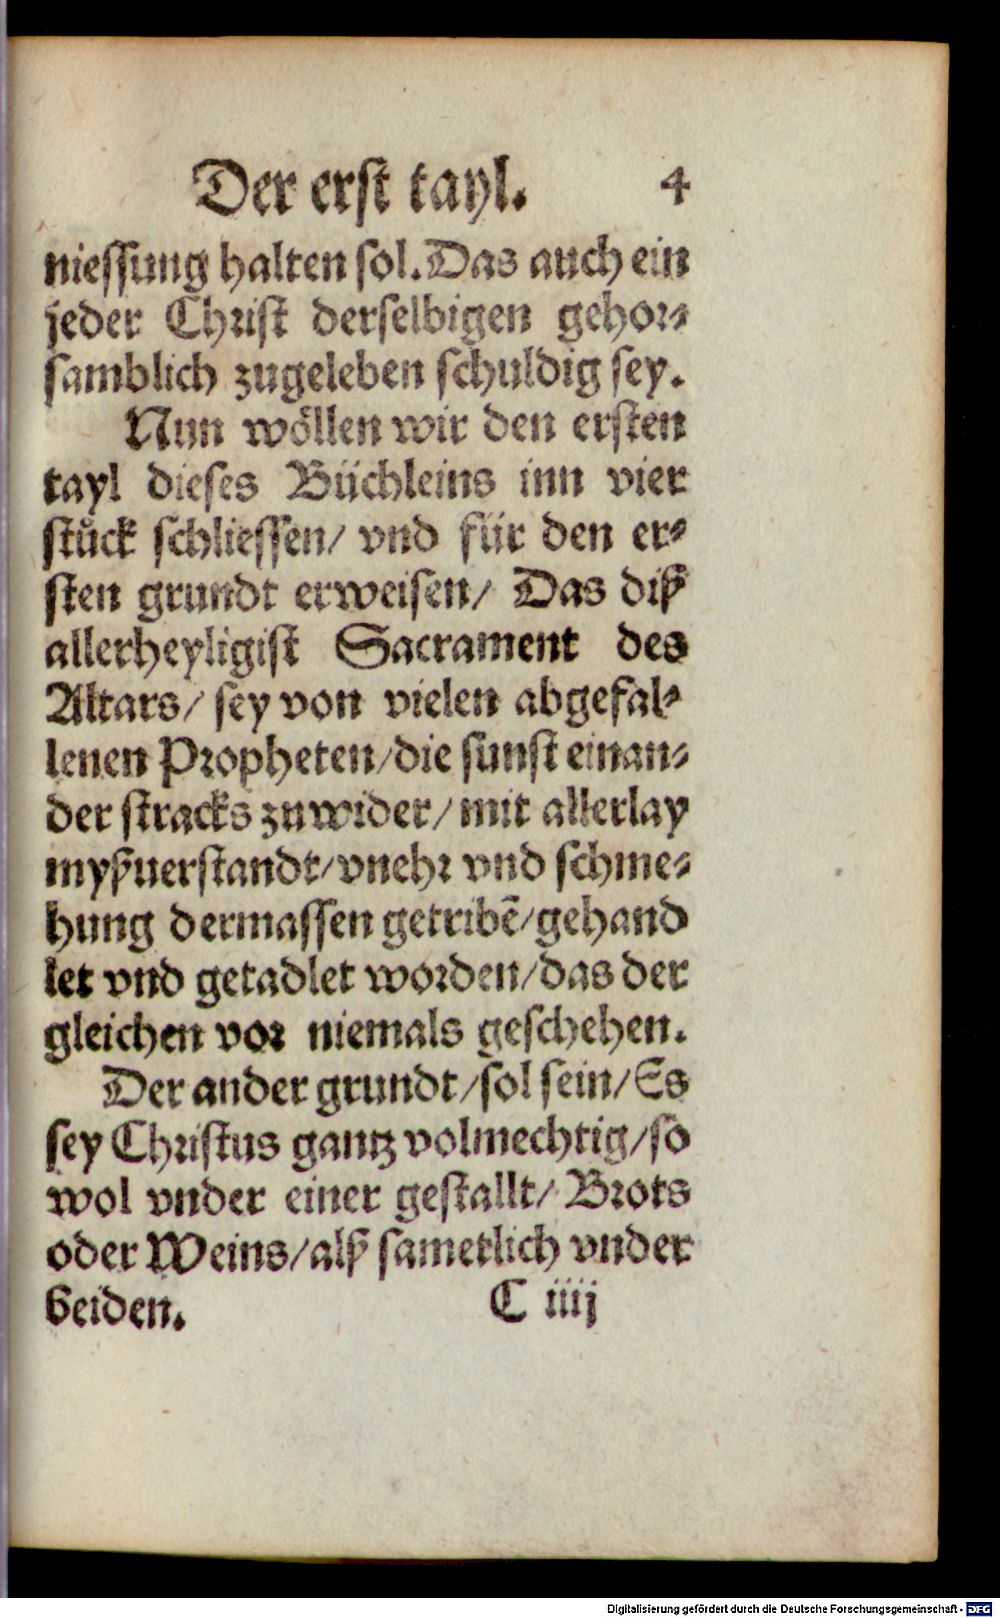 Der erst tayl. 4
niessung halten sol. Das auch ein
jeder Christ derselbigen gehor-
samblich zugeleben schuldig sey.
Nun wöllen wir den ersten
tayl dieses Büchleins inn vier
stůck schliessen/ vnd für den er-
sten grundt erweisen/ Das diß
allerheyligist Sacrament des
Altars/ sey von vielen abgefal-
lenen Propheten/die sunst einan-
der stracks zuwider/ mit allerlay
myßuerstandt/vnehr vnd schme-
hung dermassen getribẽ/gehand
let vnd getadlet worden/das der
gleichen vor niemals geschehen.
Der ander grundt/sol sein/Es
sey Christus gantz volmechtig/so
wol vnder einer gestallt/ Brots
oder Weins/alß sametlich vnder
beiden. C iiij
Digitalisierung gefördert durch die Deutsche Forschungsgemeinschaft - DFG